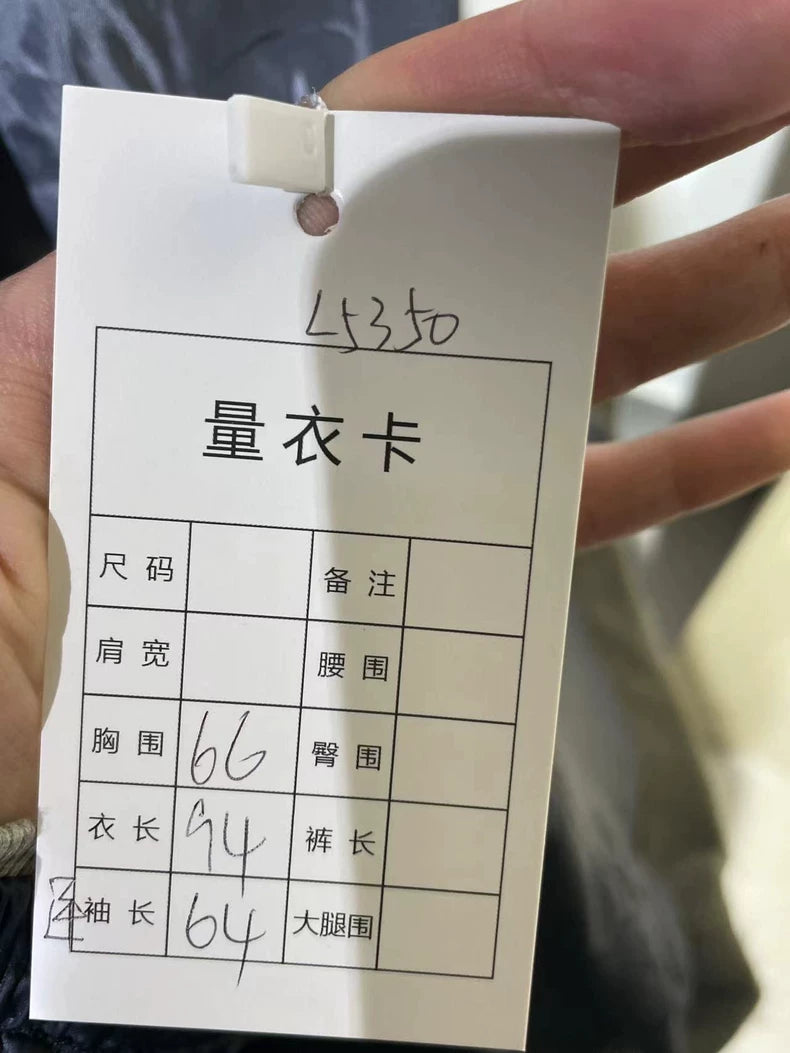 L5350
量衣卡
尺码 备注
肩宽 腰围
胸围 66 臀围
衣长 94 裤长
袖长 64 大腿围